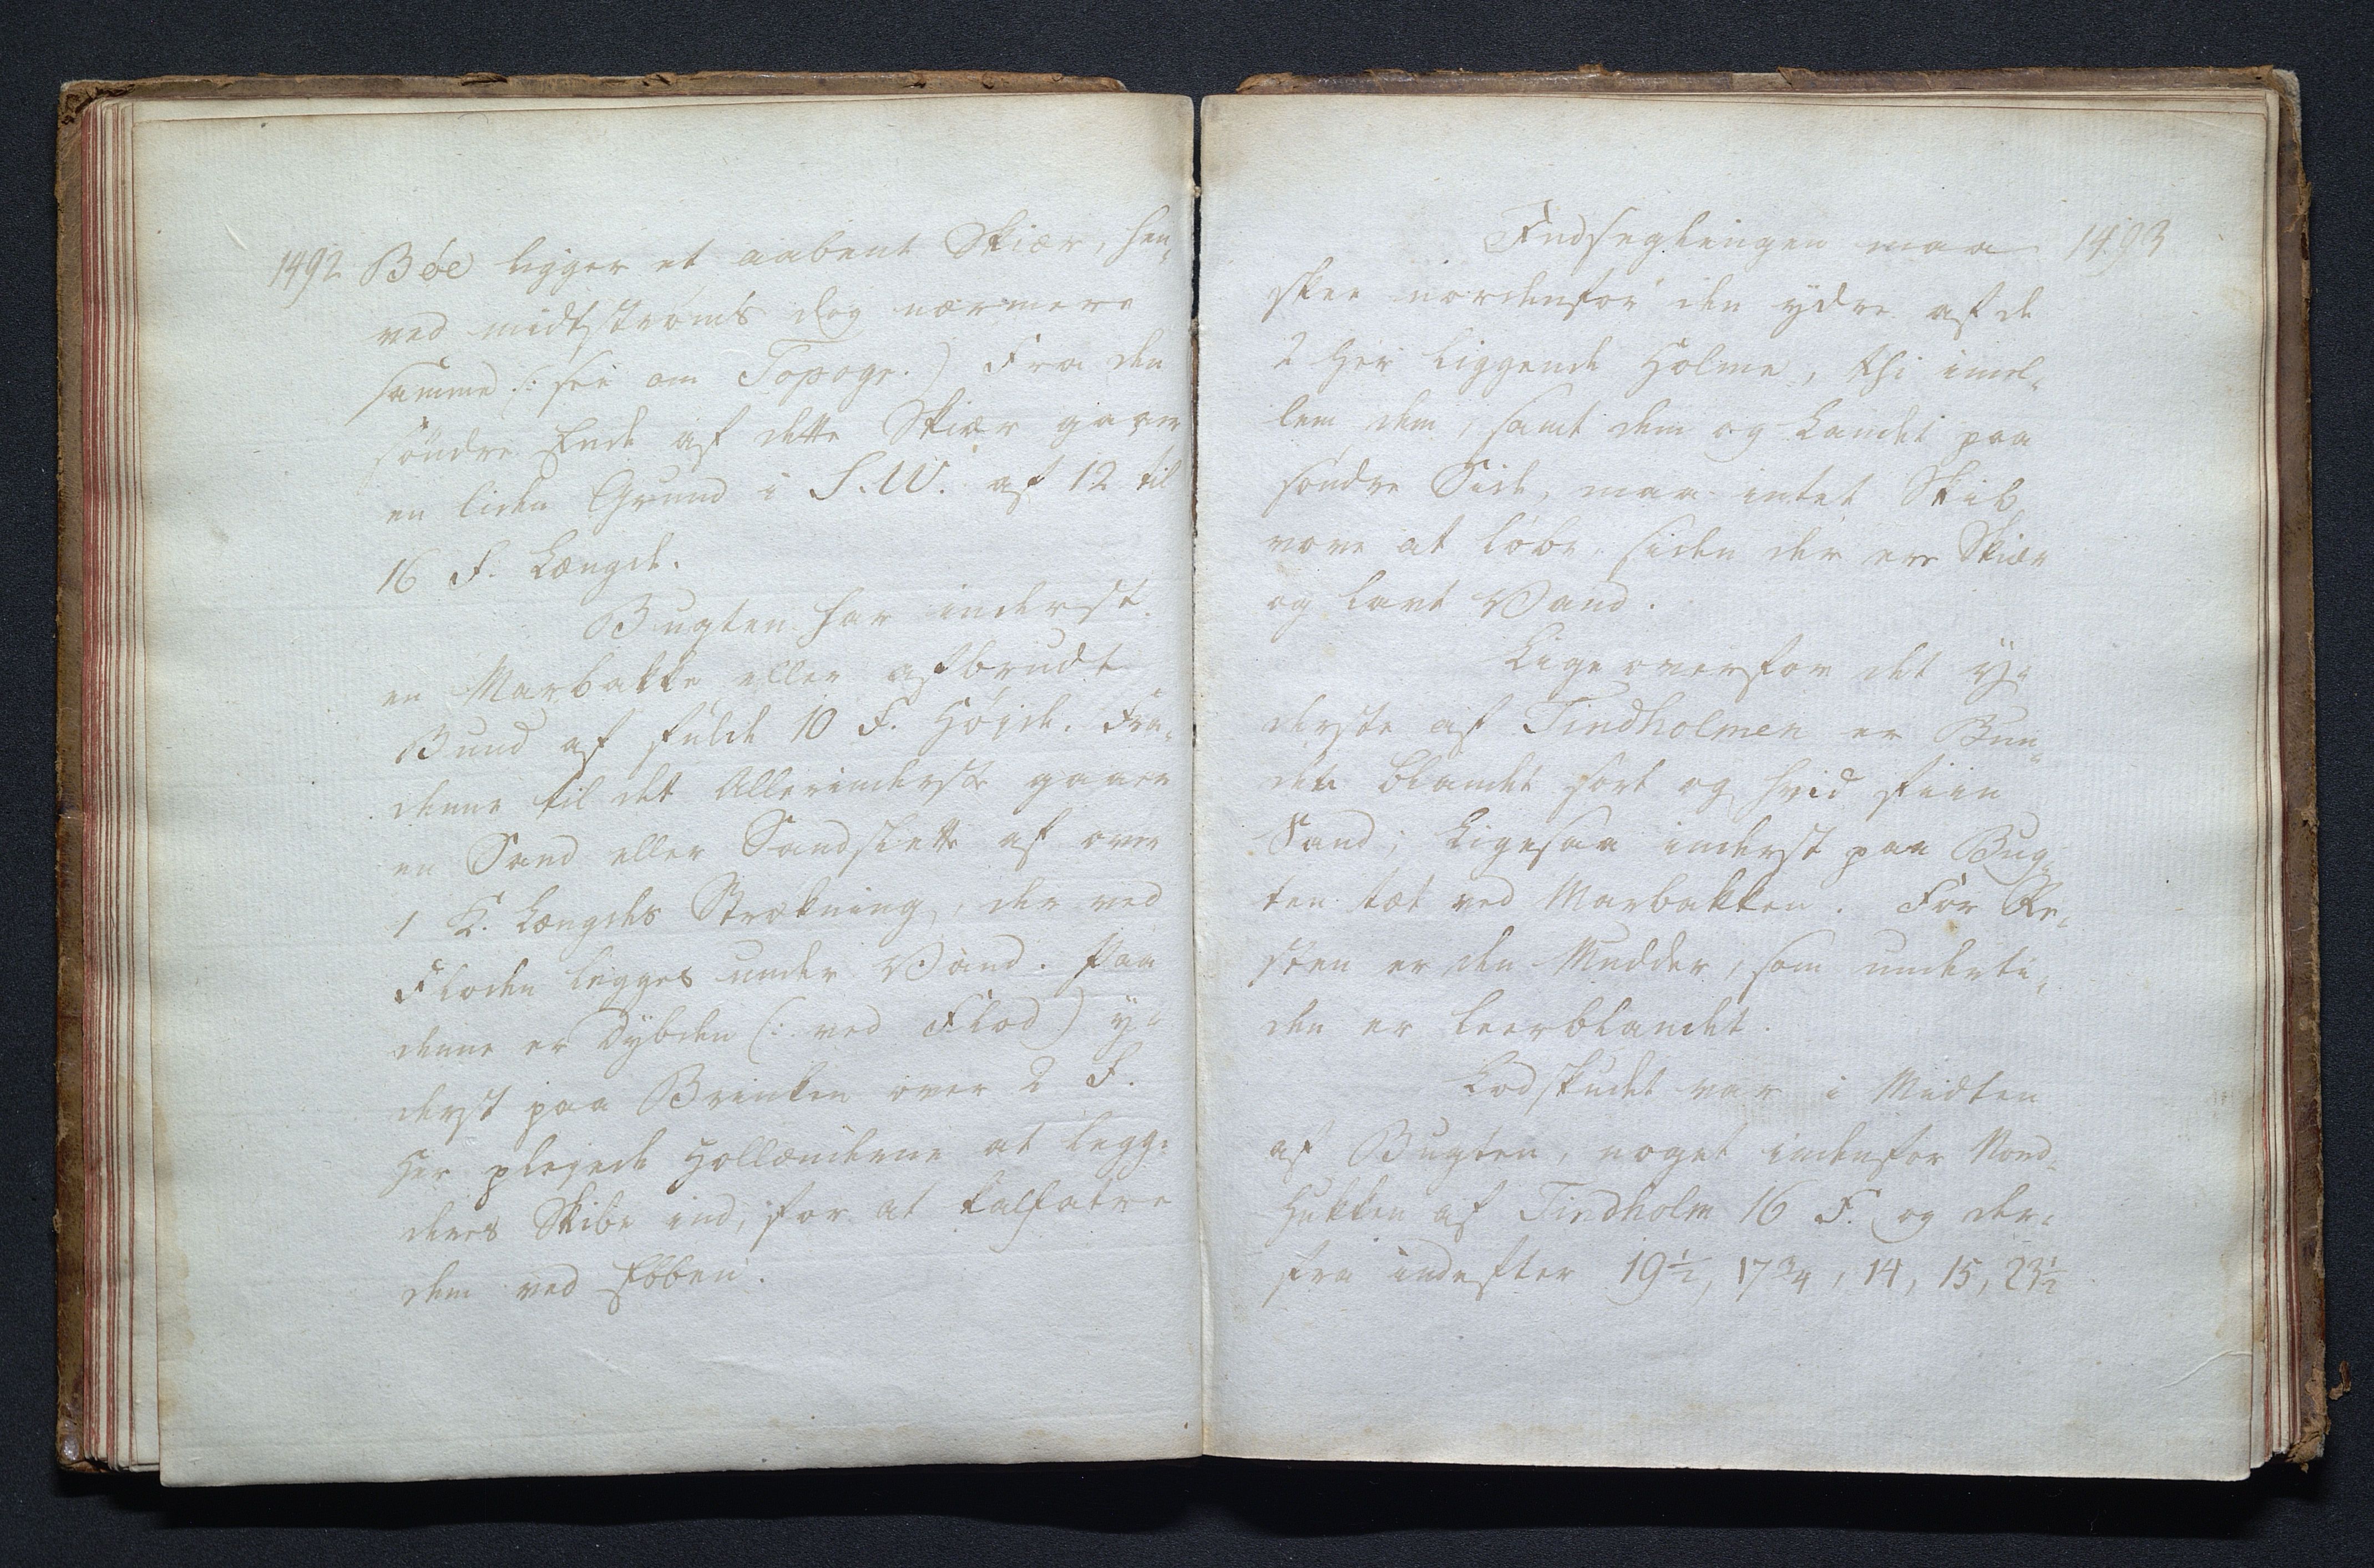 1492 Bøe ligger et aabent Skiær, hen-
ved midtstrøms dog nærmere
samme (: see om Topogr.) Fra den
søndre Ende af dette Skiær gaaer
en liden Grund i S.W. af 12 til
16 F. Længde.
Bugten har inderst
en Marbakke eller afbrudt
Bund af fulde 10 F. Høide. Fra
denne til det Allerinderste gaaer
en Sand eller Sandslette af over
1 K. Længdes Strækning, der ved
Floden legges under Vand. Paa
denne er Dybden (: ved Flod) y-
derst paa Brinken over 2 F.
Her plejede Hollænderne at legge
deres Skibe ind, for at kalfatre
dem ved Ebben.
Indseglingen maa 1493
skee nordenfor den ydre af de
2 her liggende Holme, thi imel-
lem dem, samt dem og Landet paa
søndre Side, maa intet Skib
vove at løbe, siden der ere Skiær
og lavt Vand.
Lige overfor det y-
derste af Tindholmen er Bun-
den blandet sort og hvid fiin
Sand; ligesaa inderst paa Bug-
ten tæt ved Marbakken. For Re-
sten er den Mudder, som underti-
den er leerblandet.
Lodskudet var i Midten
af Bugten, noget indenfor Nord-
Hukken af Tindholm 16 F. og der-
fra indefter 19½, 17¾, 14, 15, 23½